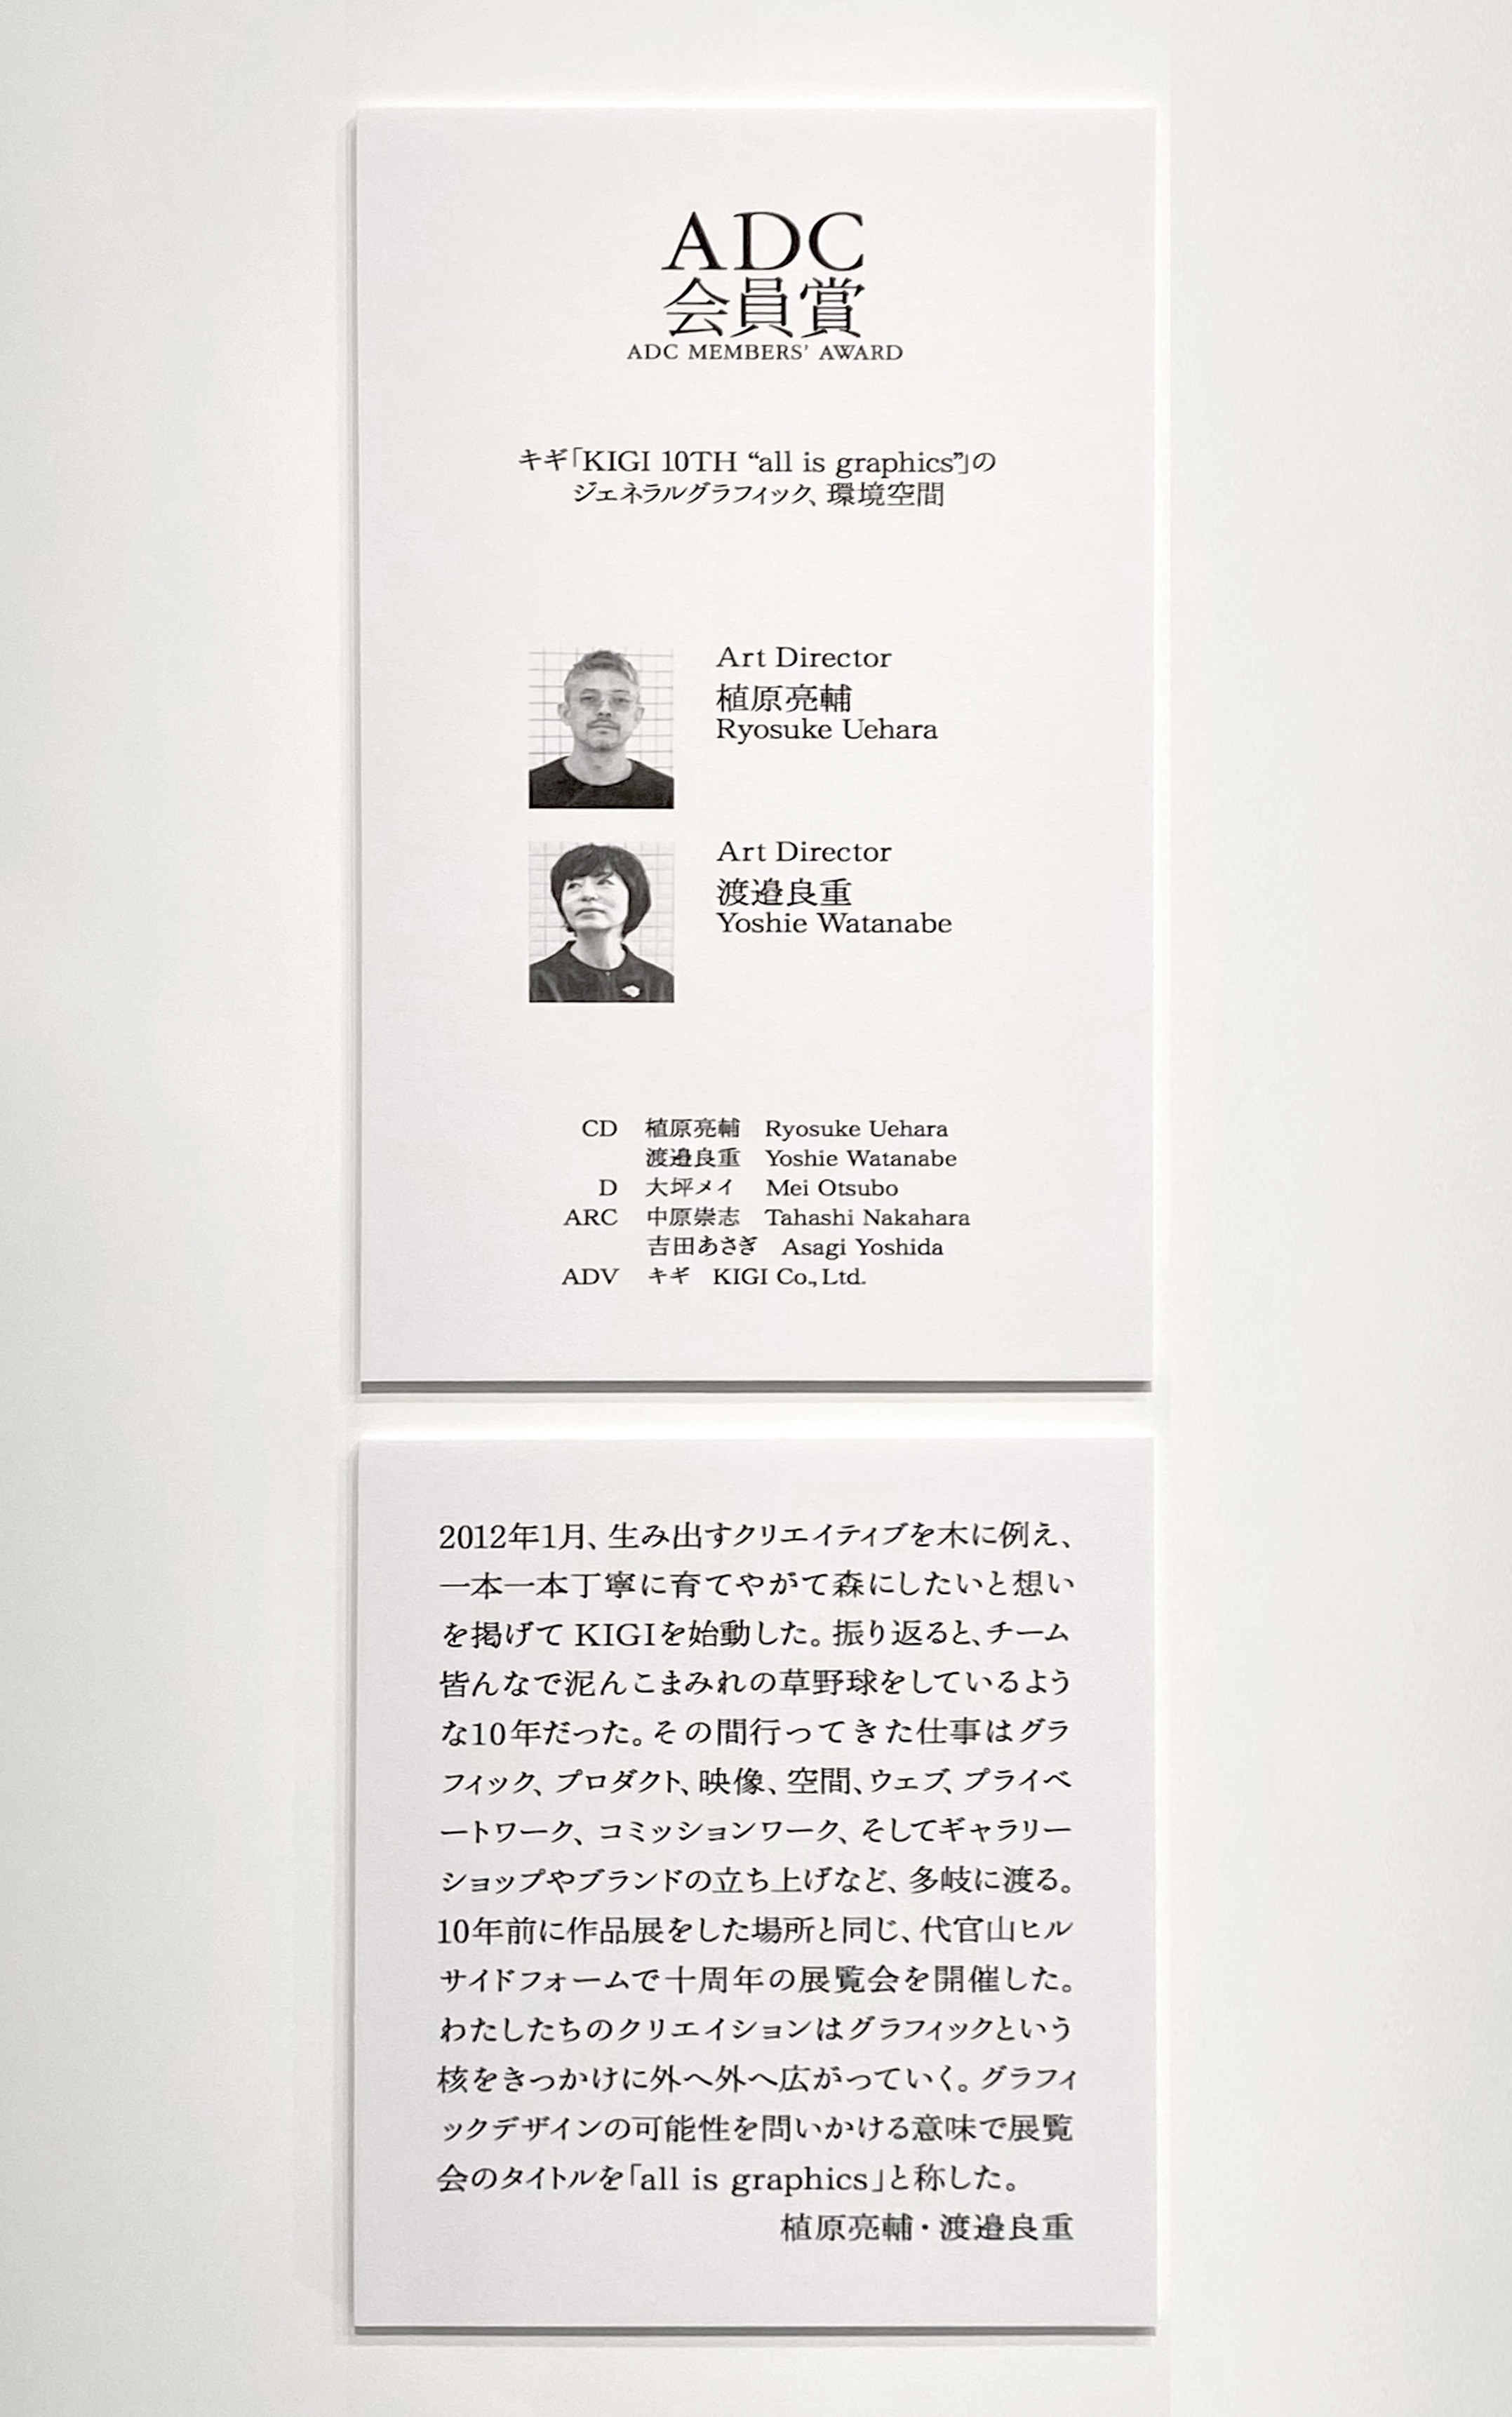 ADC
会員賞
ADC MEMBERS' AWARD
キギ「KIGI 10TH “all is graphics”」の
ジェネラルグラフィック、環境空間
Art Director
植原亮輔
Ryosuke Uehara
Art Director
渡邉良重
Yoshie Watanabe
CD 植原亮輔 Ryosuke Uehara
渡邉良重 Yoshie Watanabe
D 大坪メイ Mei Otsubo
ARC 中原崇志 Tahashi Nakahara
吉田あさぎ Asagi Yoshida
ADV キギ KIGI Co., Ltd.
2012年1月、生み出すクリエイティブを木に例え、
一本一本丁寧に育てやがて森にしたいと想い
を掲げて KIGIを始動した。振り返ると、チーム
皆んなで泥んこまみれの草野球をしているよう
な10年だった。その間行ってきた仕事はグラ
フィック、プロダクト、映像、空間、ウェブ、プライベ
ートワーク、コミッションワーク、そしてギャラリー
ショップやブランドの立ち上げなど、多岐に渡る。
10年前に作品展をした場所と同じ、代官山ヒル
サイドフォームで十周年の展覧会を開催した。
わたしたちのクリエイションはグラフィックという
核をきっかけに外へ外へ広がっていく。グラフィ
ックデザインの可能性を問いかける意味で展覧
会のタイトルを「all is graphics」と称した。
植原亮輔・渡邉良重